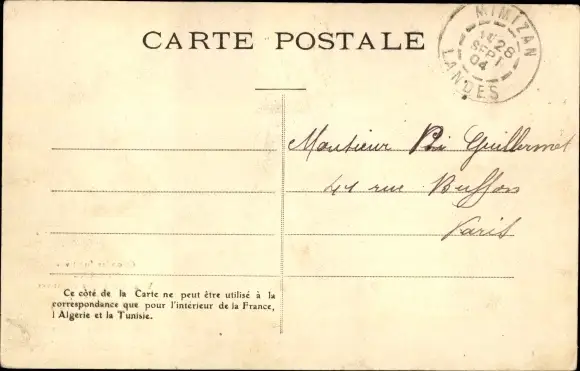 CARTE POSTALE
MIMIZAN
28
SEPT
04
LANDES
Monsieur Guillermet
41 rue Buffon
Paris
Ce côté de la Carte ne peut être utilisé à la
correspondance que pour l'intérieur de la France,
l Algerie et la Tunisie.